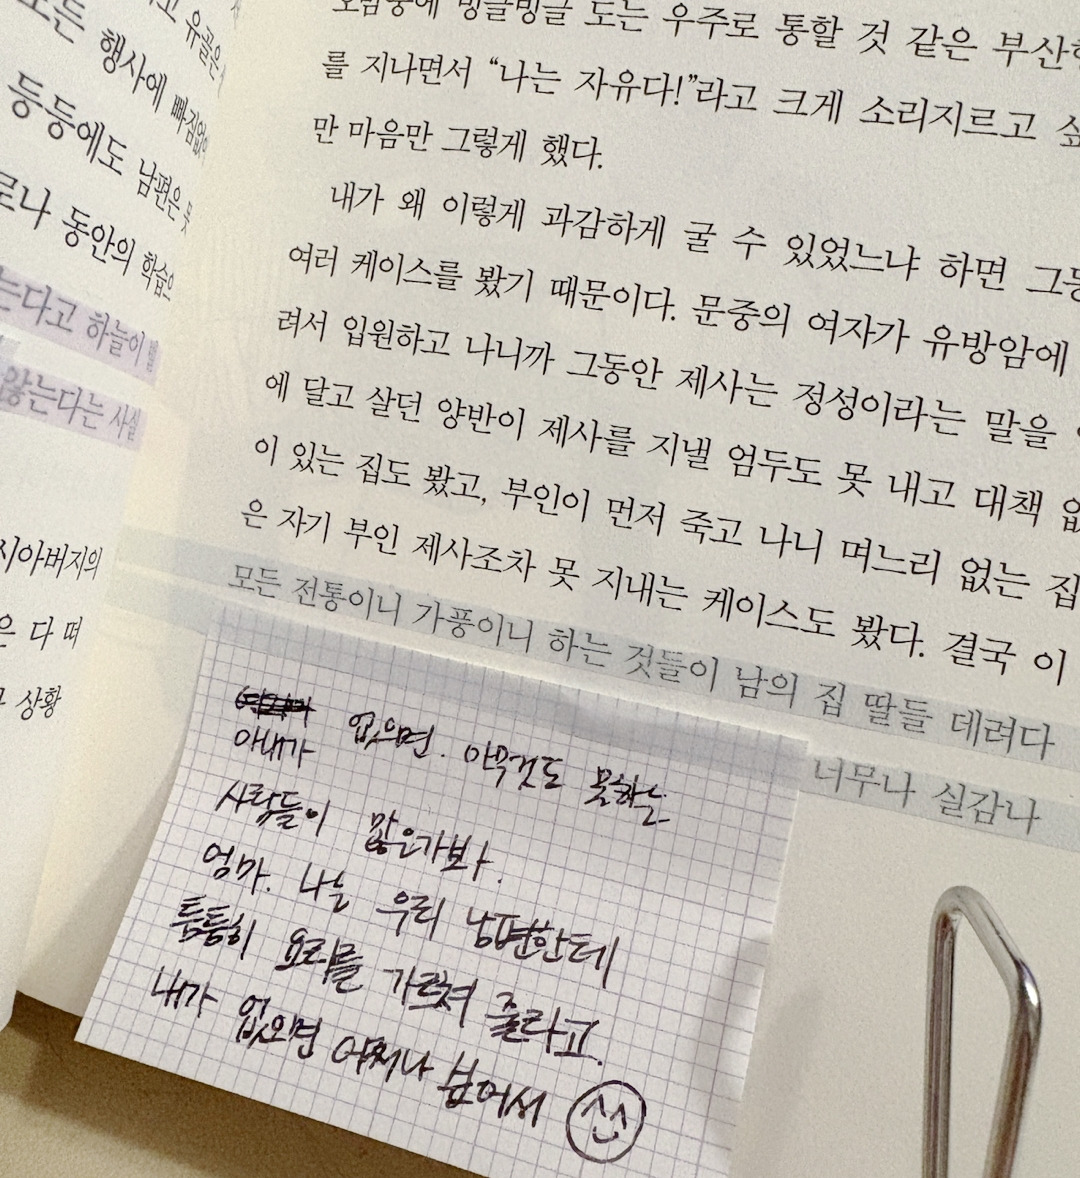 고 유골은
모든 행사에 빠짐없이
등등에도 남편은 못
로나 동안의 학습으
는다고 하늘이
않는다는 사실
시아버지의
은 다 떠
상황
도는 우주로 통할 것 같은 부산
를 지나면서 “나는 자유다!”라고 크게 소리지르고 싶
만 마음만 그렇게 했다.
내가 왜 이렇게 과감하게 굴 수 있었느냐 하면 그동
여러 케이스를 봤기 때문이다. 문중의 여자가 유방암에
려서 입원하고 나니까 그동안 제사는 정성이라는 말을
에 달고 살던 양반이 제사를 지낼 엄두도 못 내고 대책 없
이 있는 집도 봤고, 부인이 먼저 죽고 나니 며느리 없는 집
은 자기 부인 제사조차 못 지내는 케이스도 봤다. 결국 이
모든 전통이니 가풍이니 하는 것들이 남의 집 딸들 데려다
너무나 실감나
아내가 없으면. 아무것도 못하는
사람들이 많은가봐.
엄마. 나는 우리 남편한테
틈틈히 요리를 가르쳐 줄라고.
내가 없으면 어쩌나 싶어서